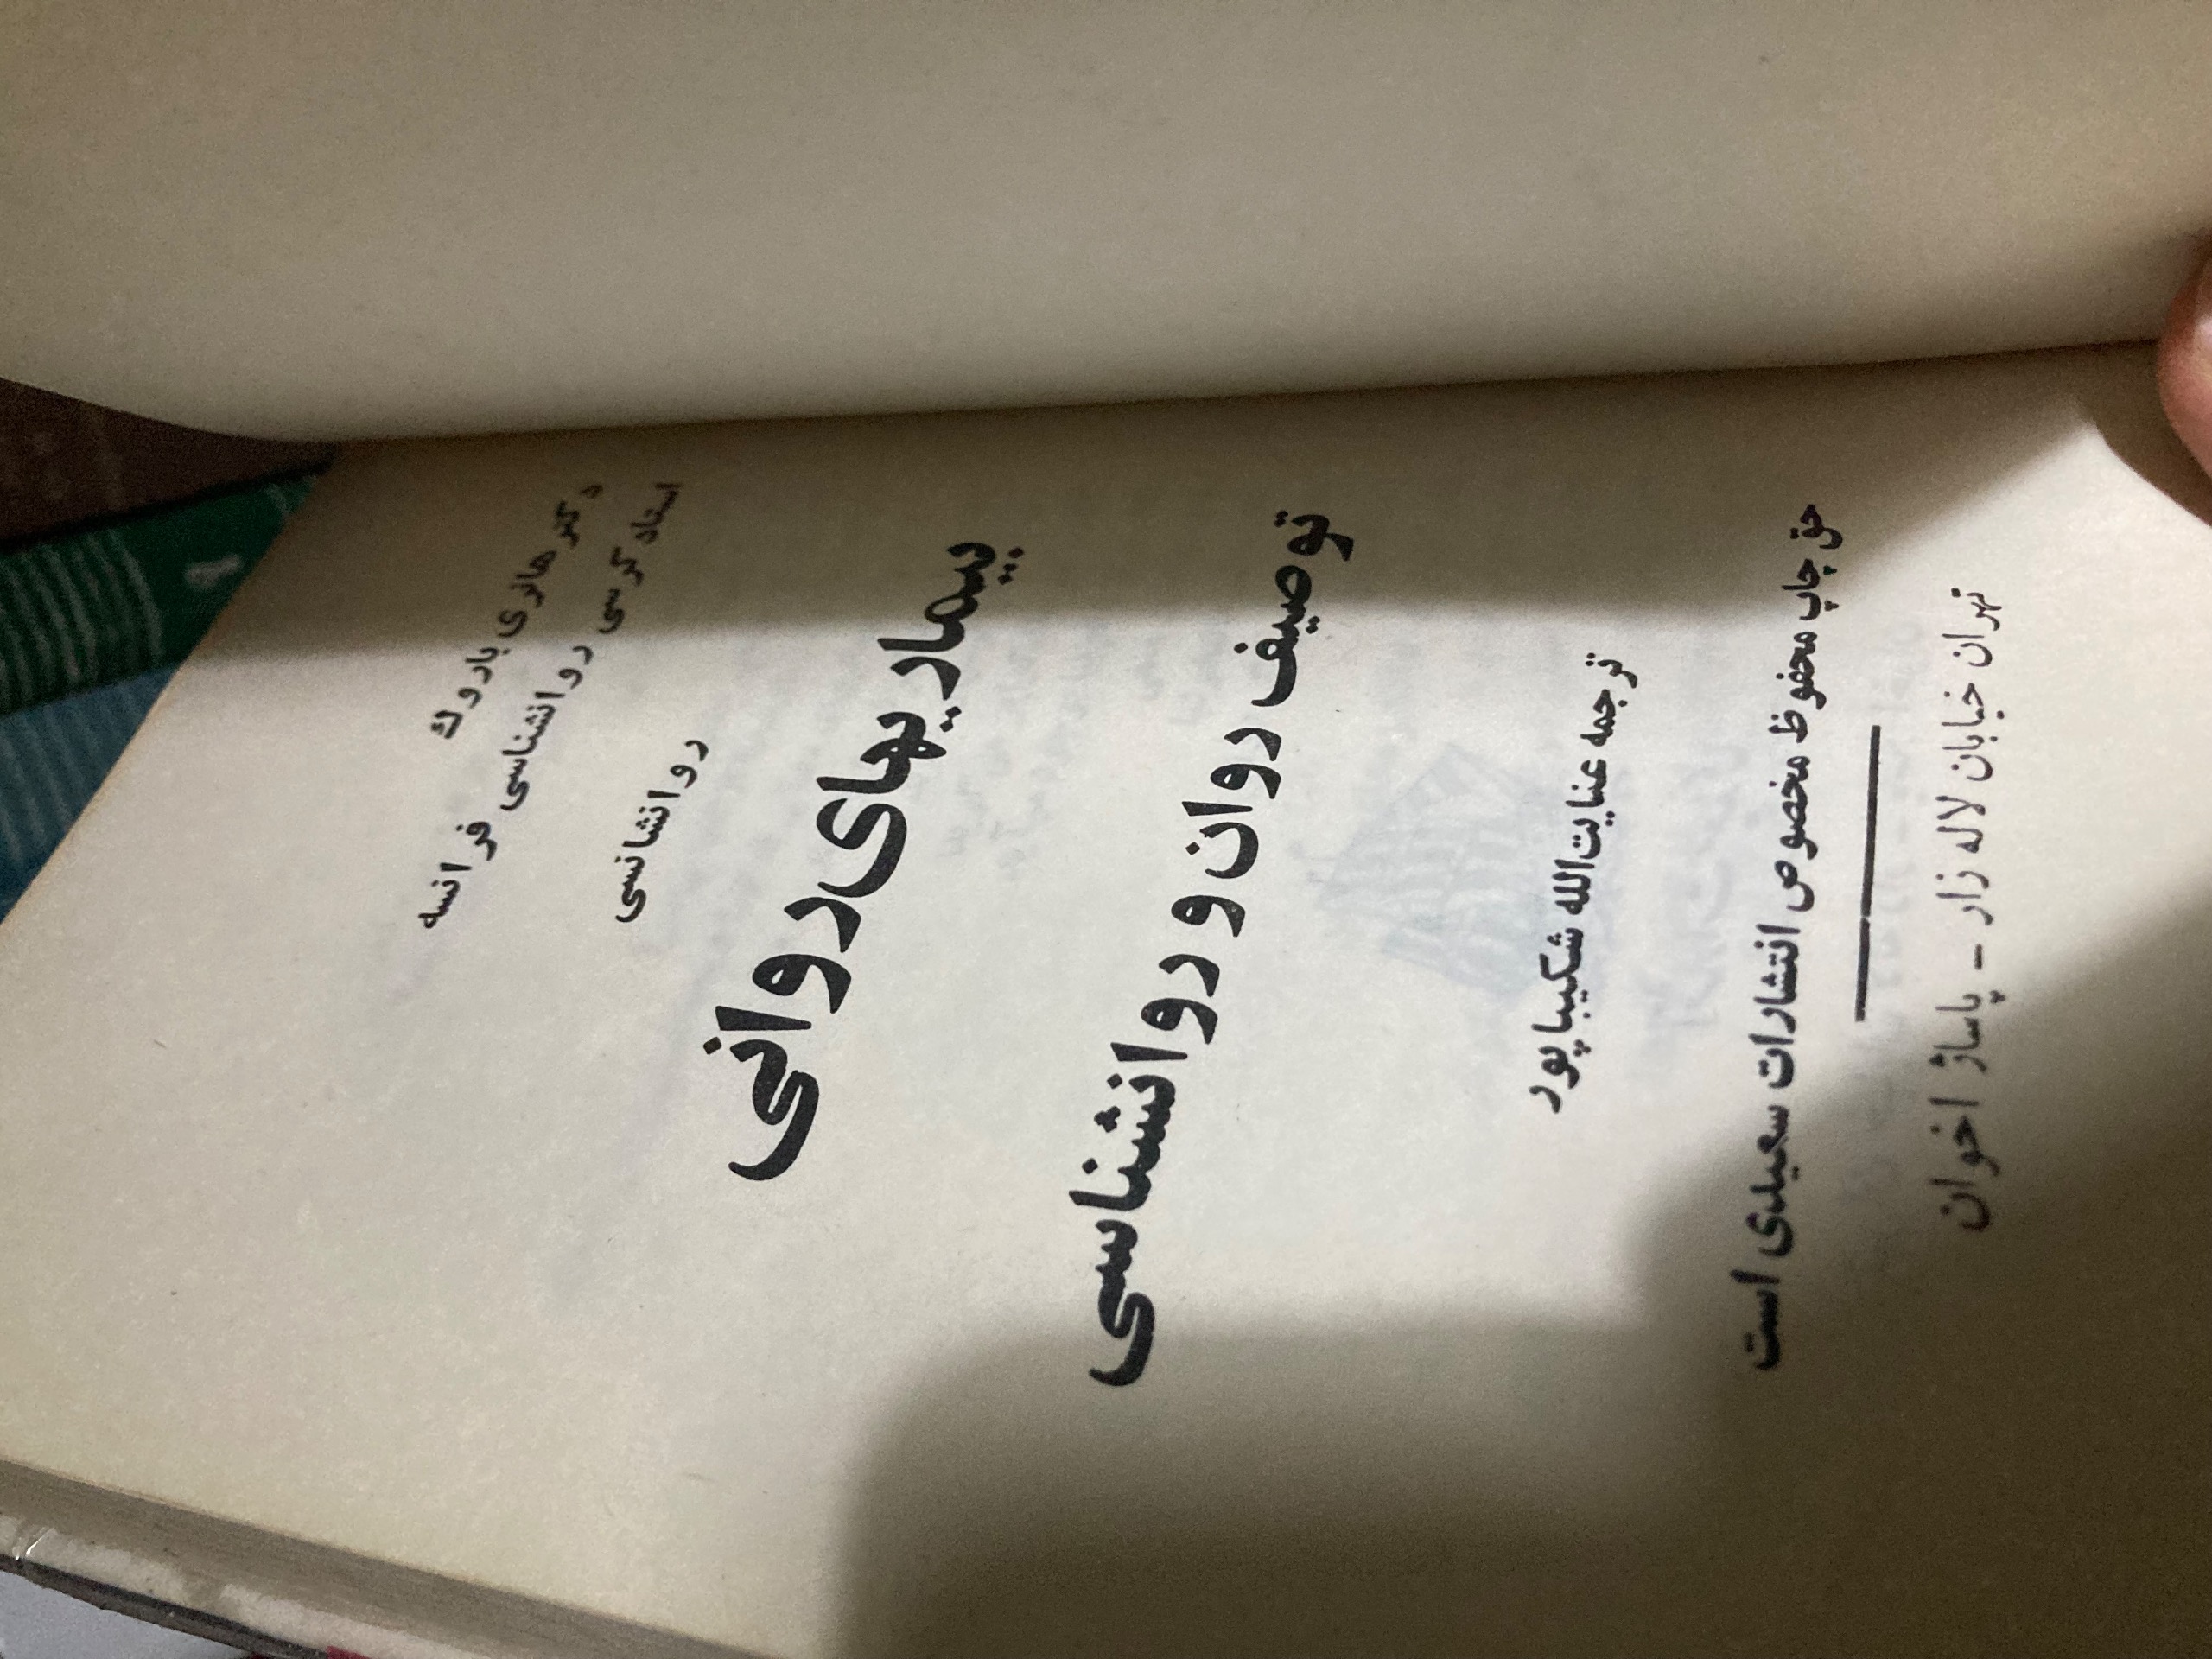 دکتر هانری باروك
استاد کرسی روانشناسی فرانسه
روانشاسی
بیماریهای روانی
توصیف روان و روانشناسی
ترجمه عنایت‌الله شکیباپور
حق چاپ محفوظ مخصوص انتشارات سعیدی است
تهران خیابان لاله زار - پاساژ اخوان